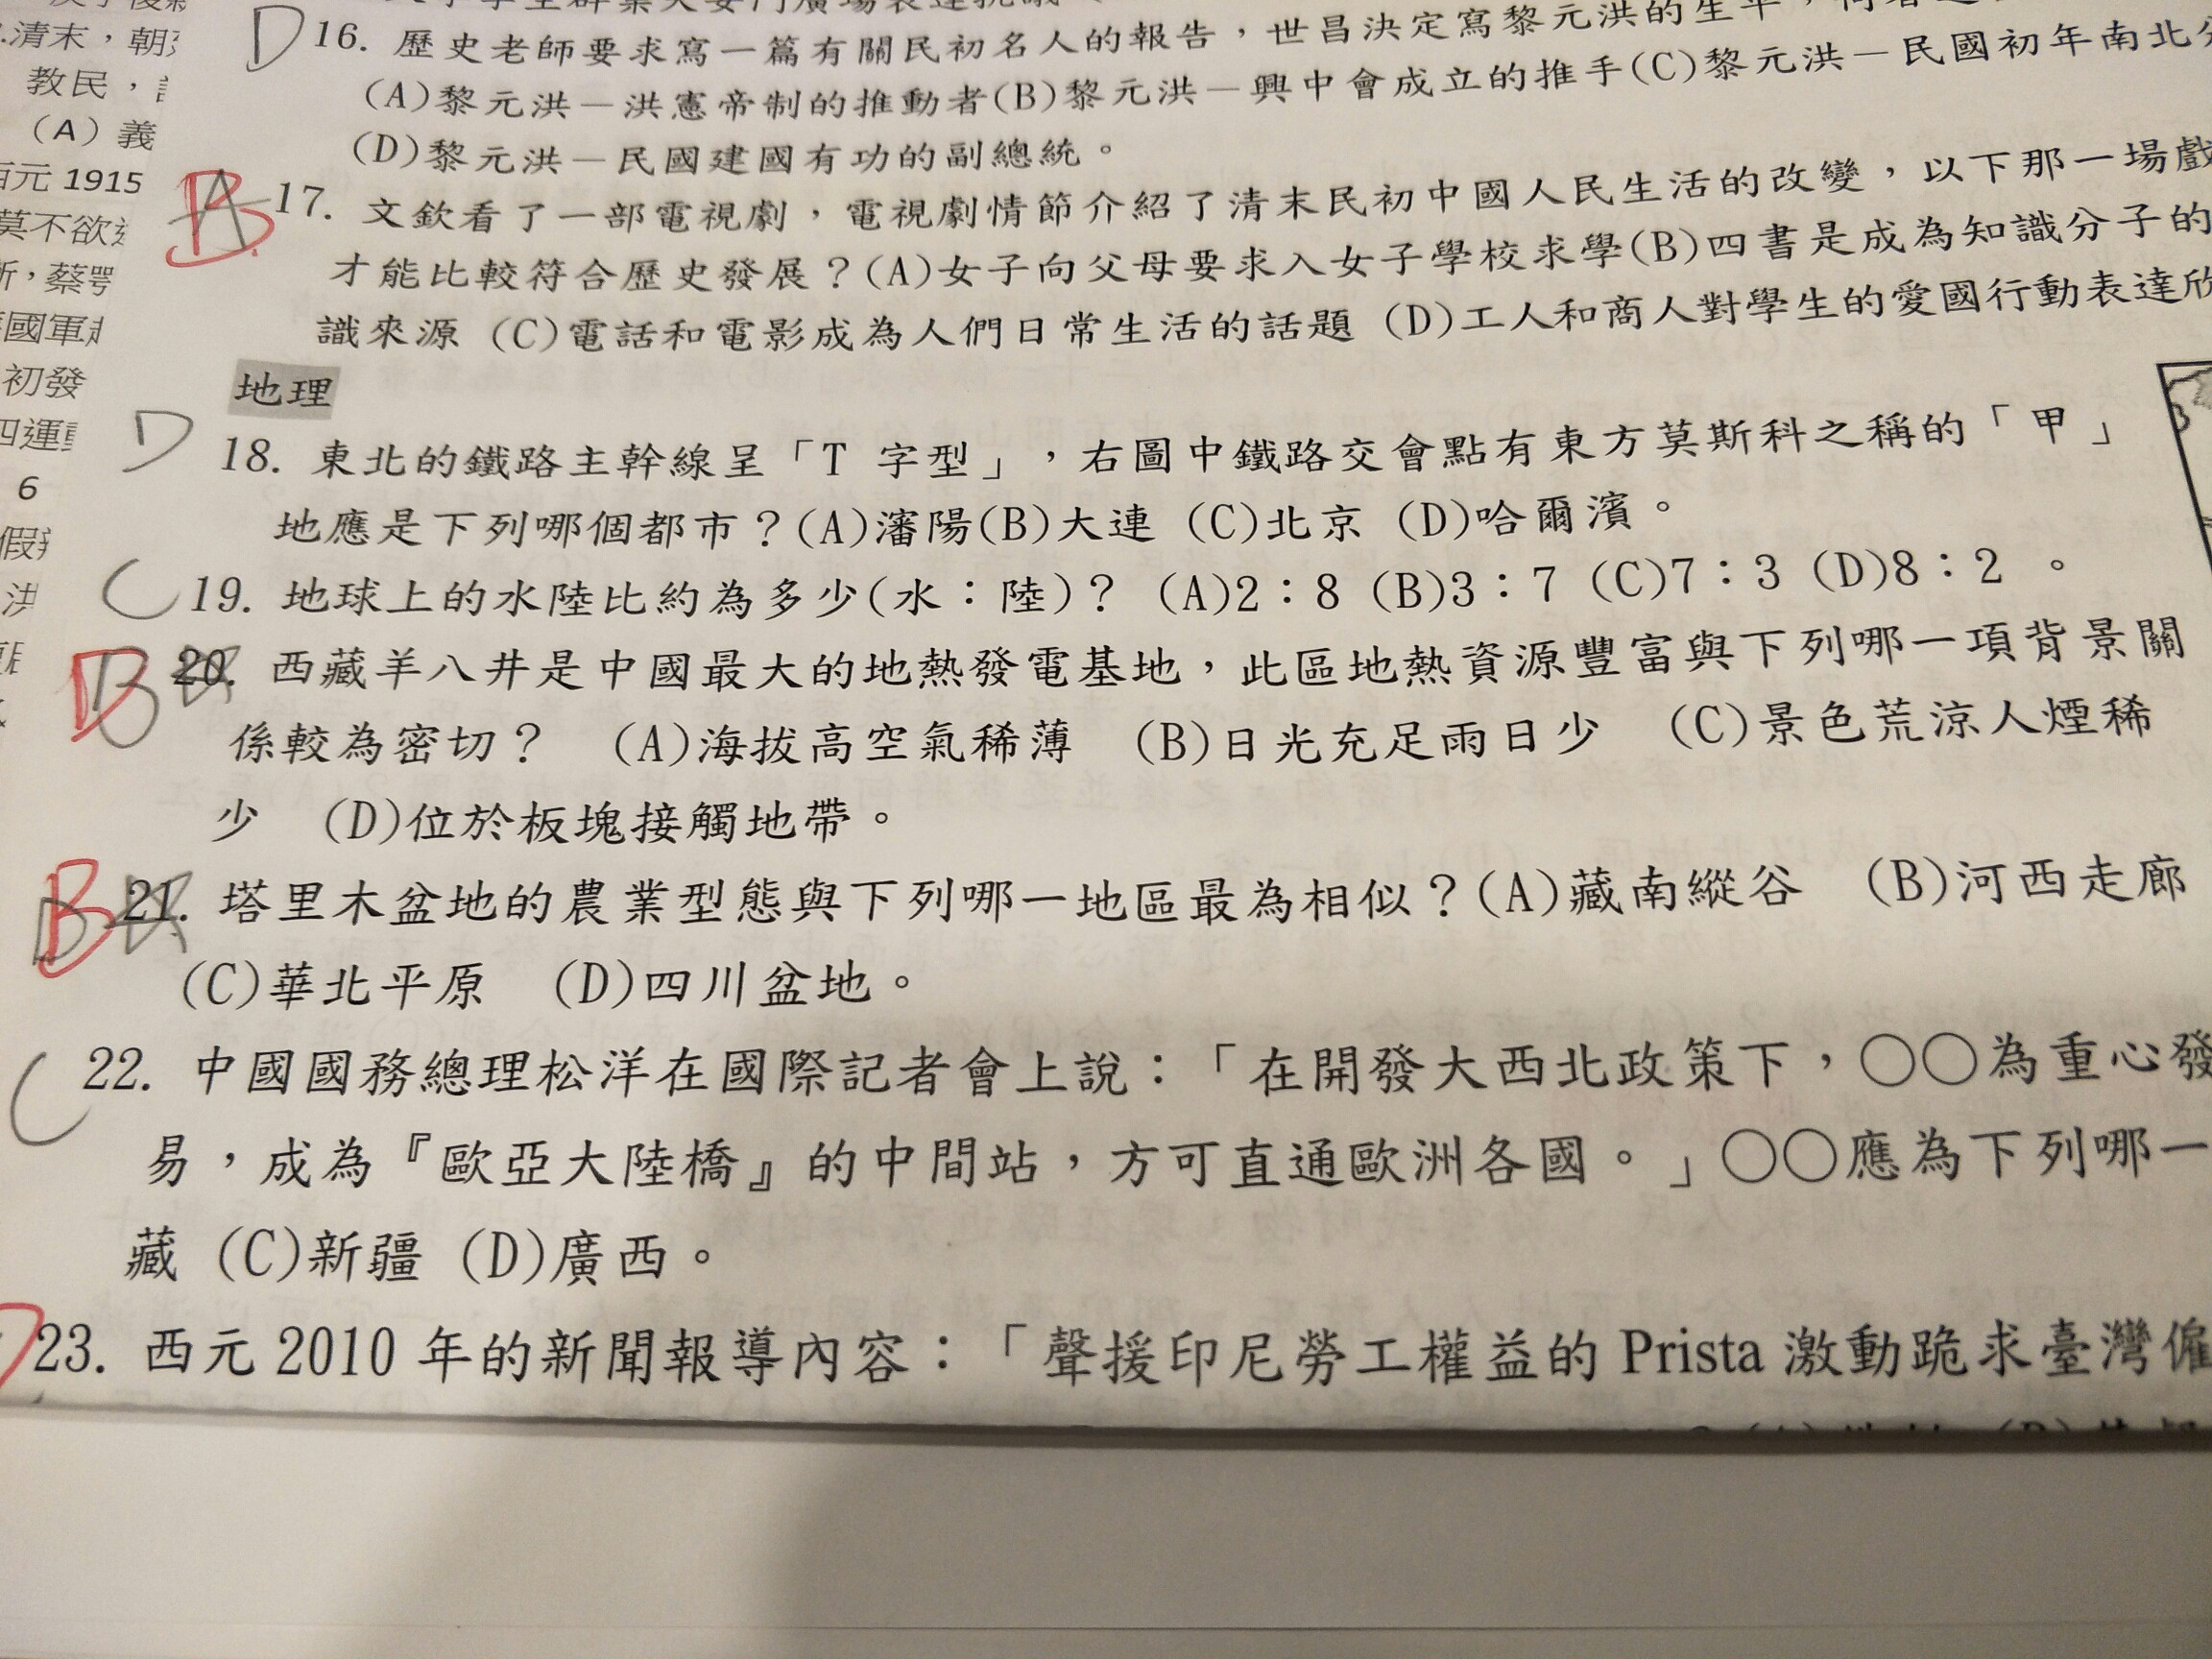 清末，朝
教民，
(A) 義
元 1915
莫不欲
，蔡
國軍
初發
四運
6
假
洪
D 16. 歷史老師要求寫一篇有關民初名人的報告，世昌決定寫黎元洪的生平，
(A)黎元洪－洪憲帝制的推動者(B)黎元洪－興中會成立的推手(C)黎元洪－民國初年南北
(D)黎元洪－民國建國有功的副總統。
A B 17. 文欽看了一部電視劇，電視劇情節介紹了清末民初中國人民生活的改變，以下那一場戲
才能比較符合歷史發展？(A)女子向父母要求入女子學校求學(B)四書是成為知識分子的
識來源 (C)電話和電影成為人們日常生活的話題 (D)工人和商人對學生的愛國行動表達欣
地理
D 18. 東北的鐵路主幹線呈「T 字型」，右圖中鐵路交會點有東方莫斯科之稱的「甲」
地應是下列哪個都市？(A)瀋陽(B)大連 (C)北京 (D)哈爾濱。
C 19. 地球上的水陸比約為多少(水：陸)？ (A)2：8 (B)3：7 (C)7：3 (D)8：2 。
D B 20. 西藏羊八井是中國最大的地熱發電基地，此區地熱資源豐富與下列哪一項背景關
係較為密切？ (A)海拔高空氣稀薄 (B)日光充足雨日少 (C)景色荒涼人煙稀
少 (D)位於板塊接觸地帶。
B D 21. 塔里木盆地的農業型態與下列哪一地區最為相似？(A)藏南縱谷 (B)河西走廊
(C)華北平原 (D)四川盆地。
C 22. 中國國務總理松洋在國際記者會上說：「在開發大西北政策下，○○為重心發
易，成為『歐亞大陸橋』的中間站，方可直通歐洲各國。」○○應為下列哪一
藏 (C)新疆 (D)廣西。
23. 西元 2010 年的新聞報導內容：「聲援印尼勞工權益的 Prista 激動跪求臺灣僱